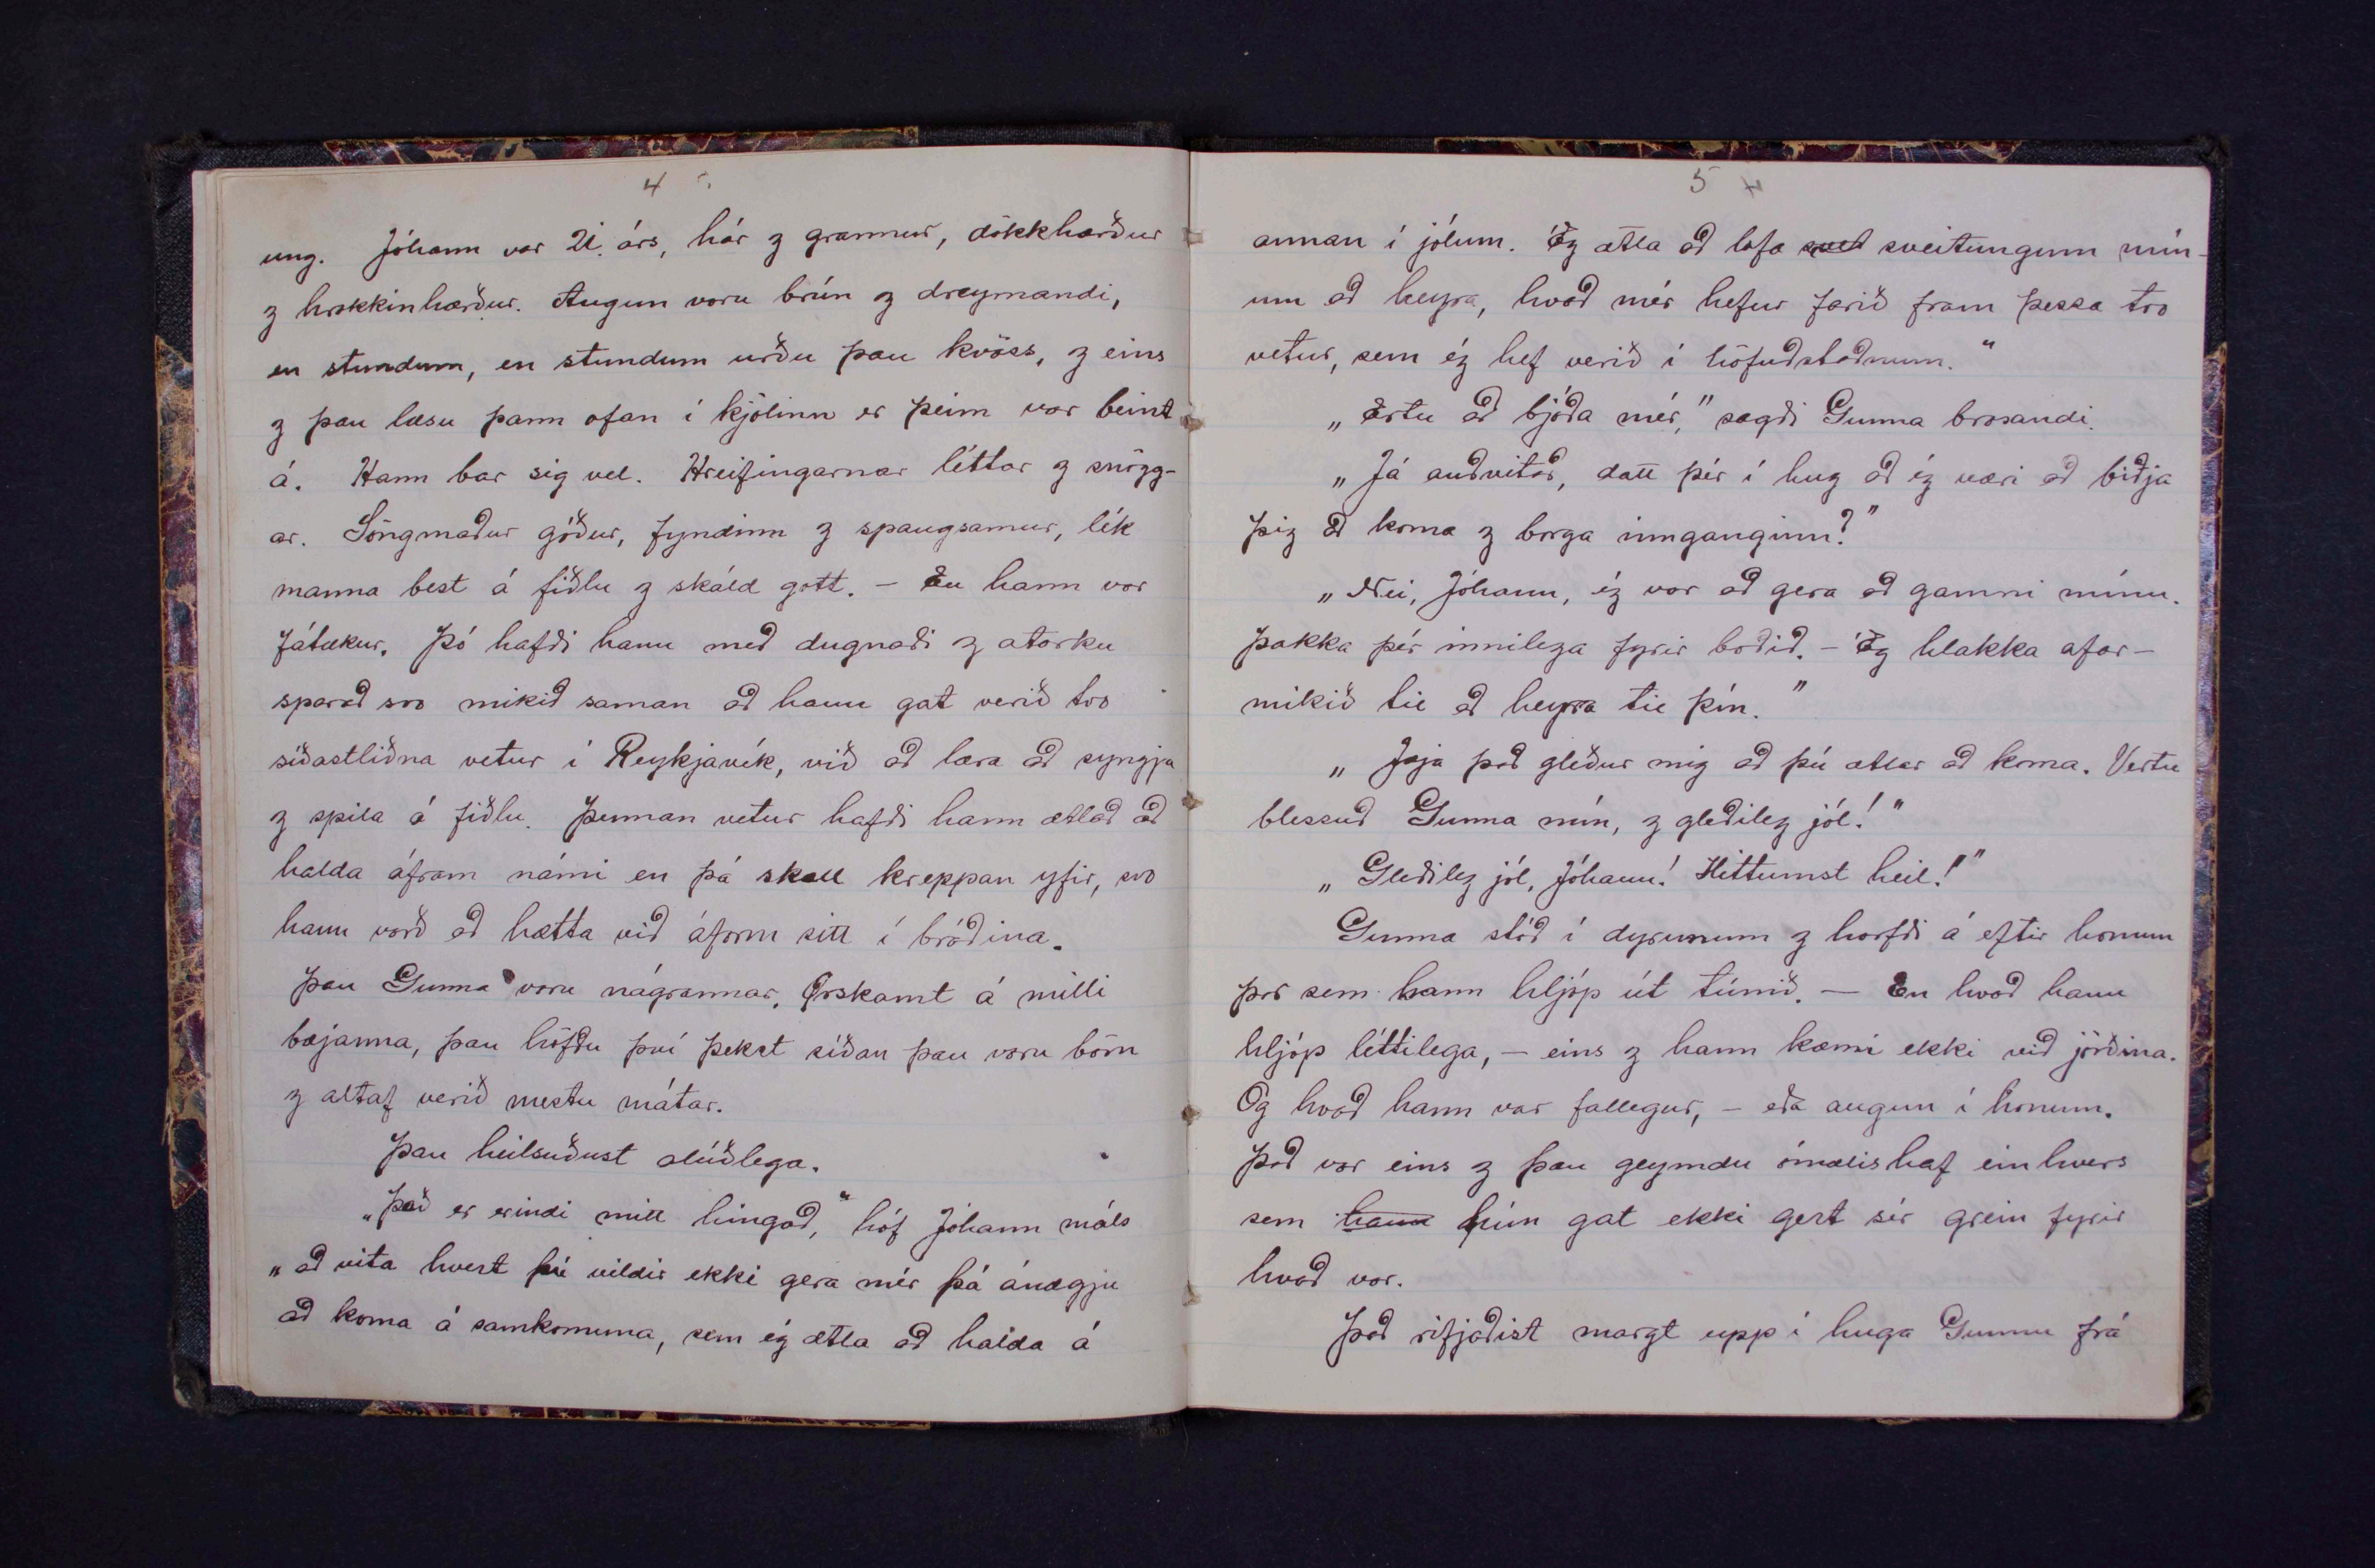 4
ung. Jóhann var 21. árs, hár og grannur, dökkhærður
og hrokkinhærður. Augun voru brún og dreymandi,
en stundum, en stundum urðu þau hvöss, og eins
og þau læsu þann ofan í kjölinn er þeim var beint
á. Hann bar sig vel. Hreifingarnar léttar og snögg-
ar. Söngmaður góður, fyndinn og spaugsamur, lék
manna best á fiðlu og skáld gott. - En hann var
fátækur. Þó hafði hann með dugnaði og atorku
sparað svo mikið saman að hann gat verið tvo
síðastliðna vetur í Reykjavík, við að læra að syngja
og spila á fiðlu. Þennan vetur hafði hann ætlað að
halda áfram námi en þá skall kreppan yfir, svo
hann varð að hætta við áform sitt í bráðina.
Þau Gunna voru nágrannar. Örskamt á milli
bæjanna, þau höfðu því þekst síðan þau voru börn
og altaf verið mestu mátar.
Þau heilsuðust alúðlega.
„Það er erindi mitt hingað," hóf Jóhann máls
„að vita hvert þú vildir ekki gera mér þá ánægju
að koma á samkomuna, sem ég ætla að halda á
5
annan í jólum. Ég ætla að lofa sveitungum mín-
um að heyra, hvað mér hefur farið fram þessa tvo
vetur, sem ég hef verið í höfuðstaðnum."
„Ertu að bjóða mér," sagði Gunna brosandi.
„Já auðvitað, datt þér í hug að ég væri að biðja
þig að koma og borga innganginn?"
„Nei, Jóhann, ég var að gera að gamni mínu.
Þakka þér innilega fyrir boðið. - Ég hlakka afar-
mikið til að heyra til þín."
„Jæja það gleður mig að þú ætlar að koma. Vertu
blessuð Gunna mín, og gleðileg jól!"
„Gleðileg jól, Jóhann! Hittumst heil!"
Gunna stóð í dyrunum og horfði á eftir honum
þar sem hann hljóp út túnið. - En hvað hann
hljóp léttilega, - eins og hann kæmi ekki við jörðina.
Og hvað hann var fallegur, - eða augun í honum.
Það var eins og þau geymdu ómælishaf einhvers
sem hann hún gat ekki gert sér grein fyrir
hvað var.
Það rifjaðist margt upp í huga Gunnu frá